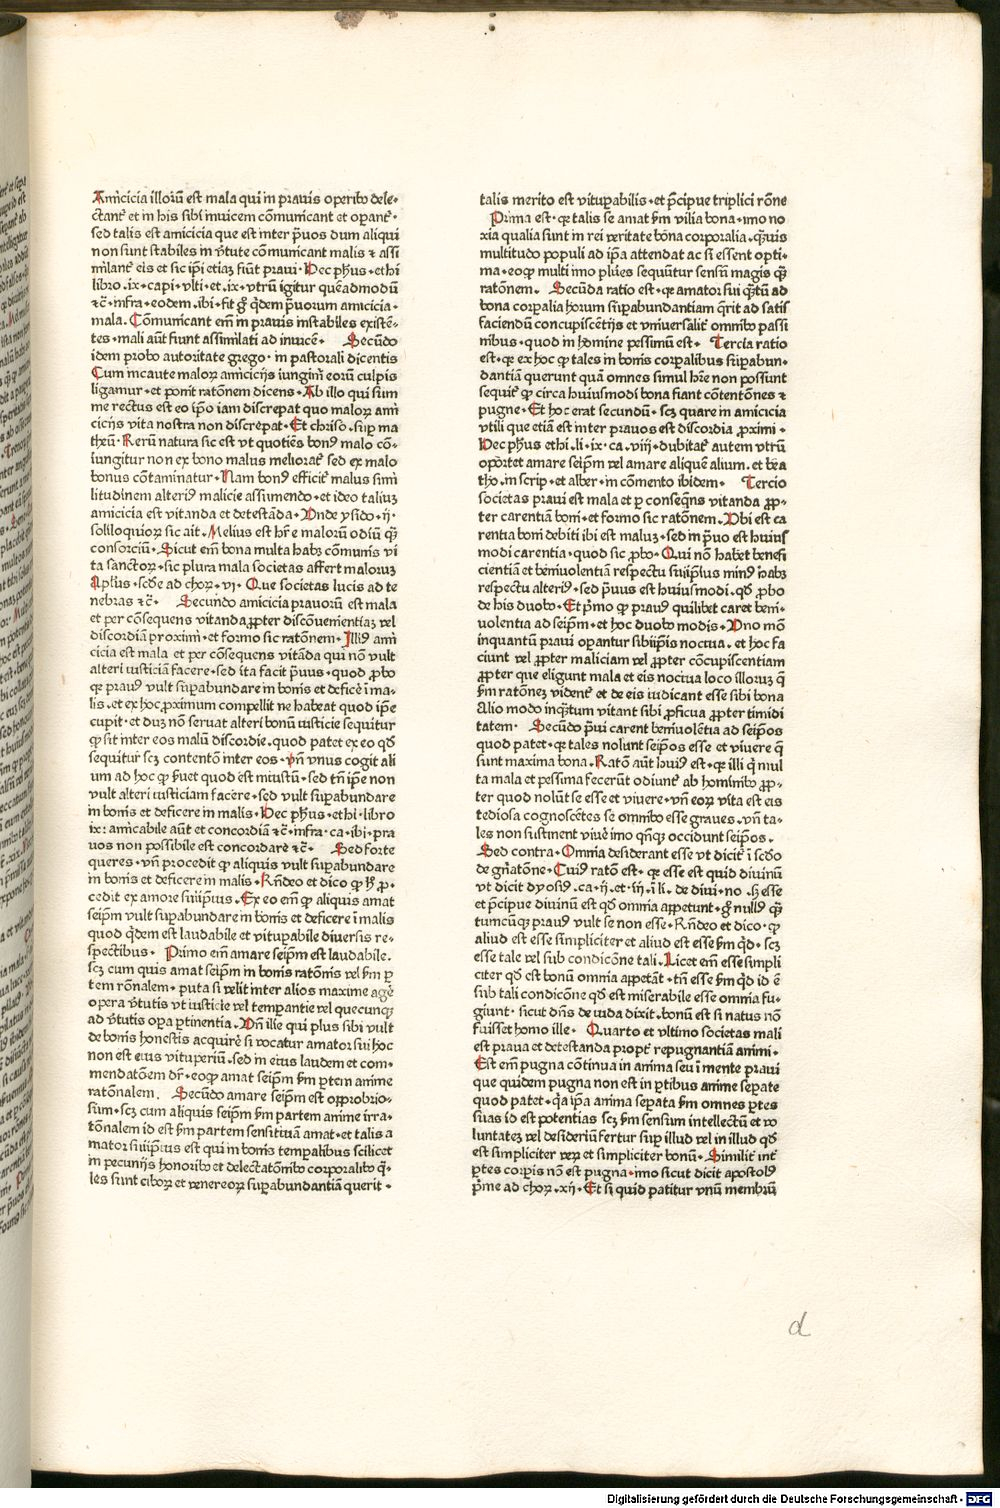 Amicicia illorū est mala qui in prauis operibꝰ dele-
ctant᷑ et in his sibi inuicem cōmunicant et opant᷑·
sed talis est amicicia que est inter p̄uos dum aliqui
non sunt stabiles in v̄tute cōmunicant malis ⁊ assi
milant᷑ eis et sic ip̄i etiaꝫ fiūt praui· Hec ph̄us·ethi
libro·ix·capi·vlti·et·ix·vtrū igitur quēadmodū
⁊c̄·infra·eodem·ibi·fit gͦ qͥdem p̄uorum amicicia·
mala. Cōmunicant em̄ in prauis instabiles existē-
tes·mali aūt fiunt assimilati ad inuicē· Secūdo
idem probo autoritate grego· in pastorali dicentis
Cum incaute maloꝝ amiciciis iungim̄ eorū culpis
ligamur·et ponit ratōnem dicens·Ab illo qui sum
me rectus est eo ip̄o iam discrepat quo maloꝝ ami
ciciis vita nostra non discrepat·Et chriso·suꝑ ma
theū·Rerū natura sic est vt quotiēs bonꝰ malo cō-
iungitur non ex bono malus meliorat᷑ sed ex malo
bonus cōtaminatur·Nam bonꝰ efficit᷑ malus simi
litudinem alteriꝰ malicie assumendo·et ideo talium
amicicia est vitanda et detestāda·Vnde ysido·ij·
soliloquioꝝ sic ait·Melius est hr̄e malorū odiū qͣꝫ
consorciū·Sicut em̄ bona multa habꝫ cōmunis vi
ta sanctoꝝ·sic plura mala societas affert maloruꝫ
Apl̄us·scd̄e ad choꝝ·vi·Que societas lucis ad te
nebras ⁊c̄· Secundo amicicia prauorū est mala
et per cōsequens vitanda ꝓpter discōuenientiaꝫ vel
discordiā proximi·et formo sic ratōnem·Illiꝰ ami
cicia est mala et per cōsequens vitāda qui nō vult
alteri iusticiā facere·sed ita facit p̄uus·quod ꝓbo
qꝛ prauꝰ vult suꝑabundare in bonis et deficē i ma-
lis·et ex hoc ꝓximum compellit ne habeat quod ip̄e
cupit·et duꝫ nō seruat alteri bonū iusticie sequitur
ꝙ sit inter eos malū discordie·quod patet ex eo qd̄
sequitur scꝫ contentō inter eos·vn̄ vnus cogit ali
um ad hoc ꝙ fiet quod est iniustū·sed tn̄ ip̄e non
vult alteri iusticiam facere·sed vult suꝑabundare
in bonis et deficere in malis·Hec ph̄us·ethi·libro
ix: amicabile aūt et concordiā ⁊c̄·infra·ca·ibi·pra
uos non possibile est concordare ⁊c̄· Sed forte
queres·vn̄ procedit ꝙ aliquis vult suꝑabundare
in bonis et deficere in malis·Rn̄deo et dico ꝙ hͦ ꝓ·
cedit ex amore suiip̄ius·Ex eo em̄ ꝙ aliquis amat
seip̄m vult suꝑabundare in bonis et deficere i malis
quod qͥdem est laudabile et vituꝑabile diuersis re-
spectibus· Primo em̄ amare seip̄m est laudabile.
scꝫ cum quis amat seip̄m in bonis ratōnis vel ẜm ꝑ
tem rōnalem·puta si velit inter alios maxime agē
opera v̄tutis vt iusticie vel temꝑantie vel quecunqꝫ
ad v̄tutis oꝑa ꝑtinentia·Vn̄ ille qui plus sibi vult
de bonis honestis acquirē si vocatur amator sui hoc
non est eius vituꝑeriū·sed in eius laudem et com-
mendatōem dr̄·eo qꝫ amat seip̄m ẜm ꝑtem anime
ratōnalem. Secūdo amare seip̄m est opprobrio-
sum·scꝫ cum aliquis seip̄m ẜm partem anime irra-
tōnalem id est ẜm partem sensitiuā amat·et talis a
mator suiip̄ius est qui in bonis temꝑalibus scilicet
in pecuniis honoribꝰ et delectatōnibꝰ corꝑalibꝰ qͥ-
les sunt ciboꝝ et venereoꝝ suꝑabundantiā querit·
talis merito est vituꝑabilis·et p̄cipue triplici rōne
Prima est·qꝛ talis se amat ẜm vilia bona·imo no
xia qualia sunt in rei veritate bona corꝑalia·qͣꝫuis
multitudo populi ad ip̄a attendat ac si essent opti-
ma·eo qꝫ multi imo plures sequūtur sensū magis qͣꝫ
ratōnem. Secūda ratio est·qꝛ amator sui qͣꝫtū ad
bona corꝑalia horum suꝑabundantiam qͥrit ad satis
faciendū concupiscētiis et vniuersalit᷑ omnibꝰ passi
nibus·quod in homine pessimū est· Tercia ratio
est·qꝛ ex hoc ꝙ tales in bonis corꝑalibus suꝑabun-
dantiā querunt quā omnes simul hr̄e non possunt
sequit᷑ ꝙ circa huiusmodi bona fiant cōtentōnes ⁊
pugne·Et hoc erat secundū·scꝫ quare in amicicia
vtili que etiā est inter prauos est discordia ꝓximi·
Hec ph̄us ethi·li·ix·ca·viij·dubitat᷑ autem vtrū
oꝑortet amare seip̄m vel amare aliquē alium·et bea
tho·in scrip·et alber·in cōmento ibidem· Tercio
societas praui est mala et ꝑ conseqn̄s vitanda ꝓp-
ter carentiā boni·et formo sic ratōnem·Vbi est ca
rentia boni debiti ibi est maluꝫ·sed in p̄uo est huius
modi carentia·quod sic ꝓbo·Qui nō habet benefi
cientiā et beniuolentiā respectu suiip̄ius minꝰ habꝫ
respectu alteriꝰ·sed p̄uus est huiusmodi·qd̄ ꝓbo
de his duobꝰ·Et p̄mo ꝙ prauꝰ quilibet caret beni-
uolentia ad seip̄m·et hoc duobꝰ modis·Vno mō
inquantū praui oꝑantur sibiip̄is nociua·et hoc fa
ciunt vel ꝓpter maliciam vel ꝓpter cōcupiscentiam
ꝓpter que eligunt mala et eis nociua loco illoruꝫ q̄
ẜm ratōneꝫ vident᷑ et de eis iudicant esse sibi bona
Alio modo inqͣꝫtum vitant sibi ꝓficua ꝓpter timidi
tatem· Secūdo p̄ui carent beniuolentia ad seip̄os
quod patet·qꝛ tales nolunt seip̄os esse et viuere q̄
sunt maxima bona·Ratō aūt huiꝰ est·qꝛ illi qͥ mul
ta mala et pessima fecerūt odiunt᷑ ab hominibꝰ ꝓp-
ter quod nolūt se esse et viuere·vn̄ eoꝝ vita est eis
tediosa cognoscētes se omnibꝰ esse graues·vn̄ ta-
les non sustinent viuē imo qn̄qꝫ occidunt seip̄os.
Sed contra·Omnia desiderant esse vt dicit᷑ i scd̄o
de gn̄atōne·Cuiꝰ ratō est·qꝛ esse est quid diuinū
vt dicit dyosiꝰ·ca·ij·et·iij·i li·de diui·no·hͦ esse
et p̄cipue diuinū est qd̄ omnia appetunt·gͦ nullꝰ qͣꝫ
tumcūqꝫ prauꝰ vult se non esse·Rn̄deo et dico·ꝙ
aliud est esse simpliciter et aliud est esse ẜm qͥd·scꝫ
esse tale vel sub condicōne tali·Licet em̄ esse simpli
citer qd̄ est bonū omnia appetāt·tn̄ esse ẜm qͥd id ē
sub tali condicōne qd̄ est miserabile esse omnia fu-
giunt·sicut dn̄s de iuda dixit·bonū est si natus nō
fuisset homo ille· Quarto et vltimo societas mali
est praua et detestanda propt᷑ repugnantiā animi·
Est em̄ pugna cōtinua in anima seu i mente praui
que quidem pugna non est in ꝑtibus anime seꝑate
quod patet·qꝛ ip̄a anima seꝑata ẜm omnes ꝑtes
suas id est potentias scꝫ ẜm sensum intellectū et vo
luntateꝫ vel desideriū fertur suꝑ illud vel in illud qd̄
est simpliciter veꝝ et simpliciter bonū·Similit᷑ int᷑
ꝑtes corꝑis nō est pugna·imo sicut dicit apostolꝰ
p̄me ad choꝝ·xij·Et si quid patitur vnū membrū
d
Digitalisierung gefördert durch die Deutsche Forschungsgemeinschaft - DFG